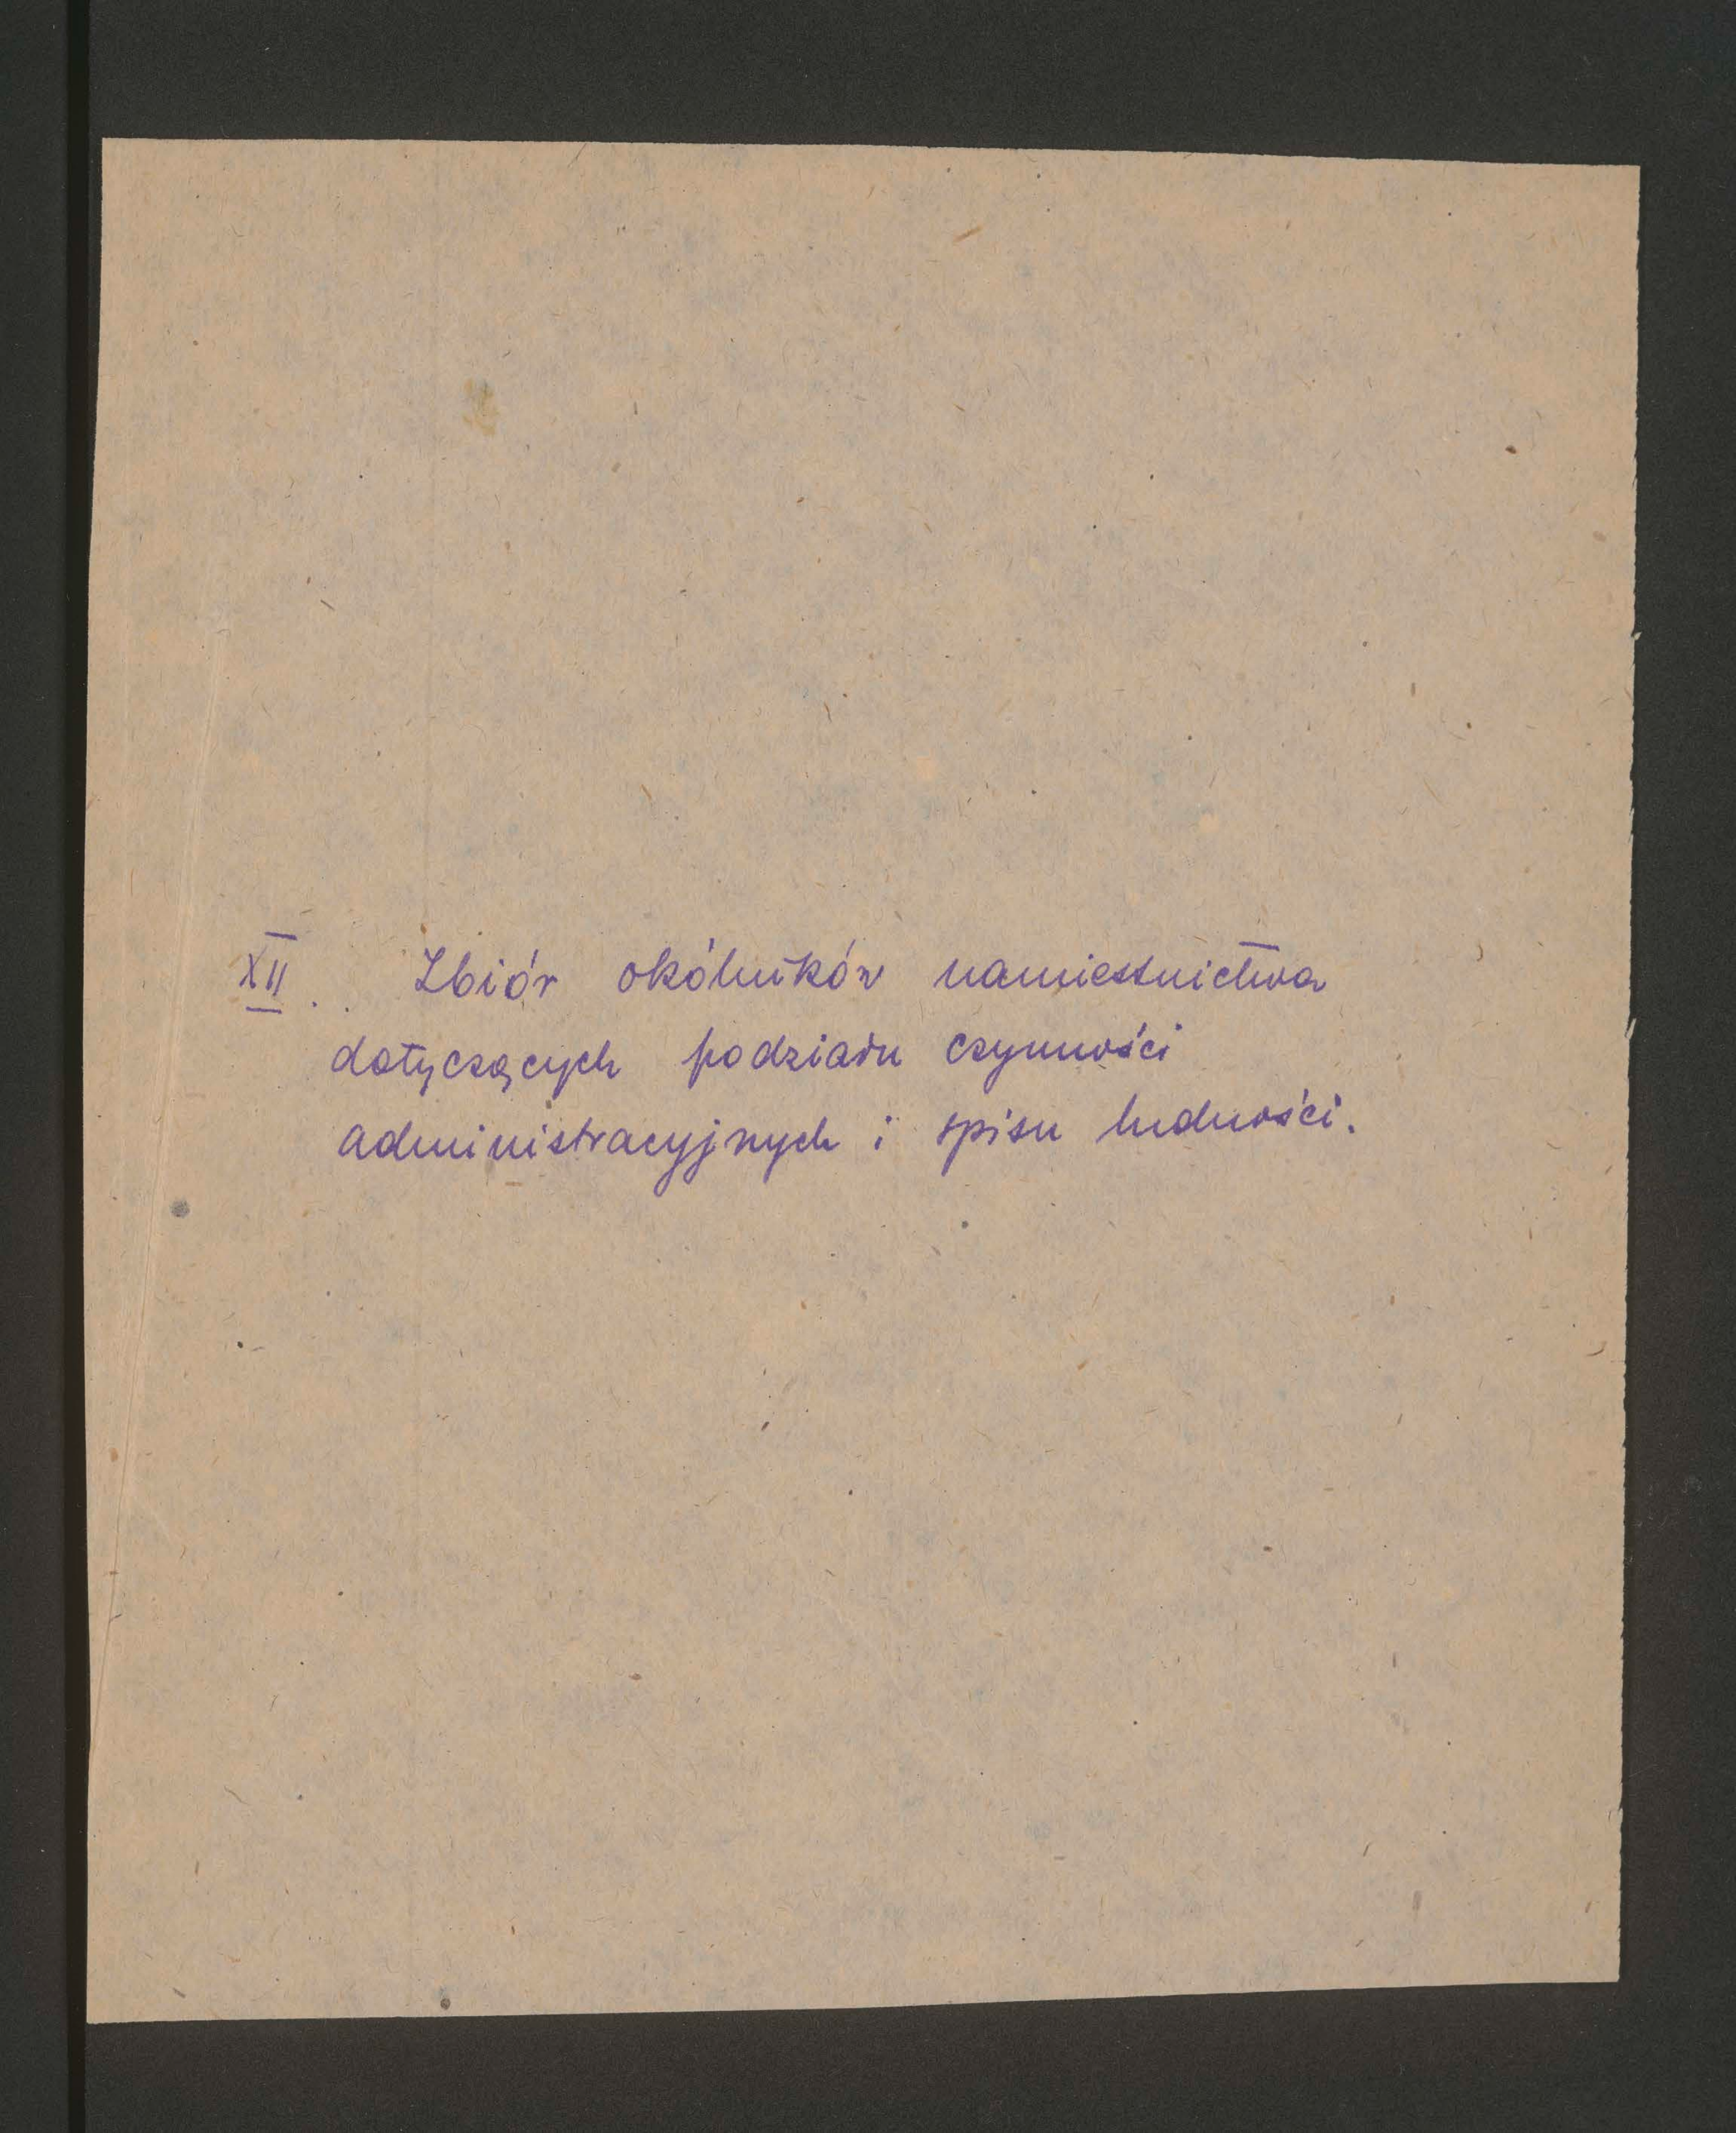 XII. Zbiór okólników namiestnictwa
dotyczących podziału czynności
administracyjnych i spisu ludności.